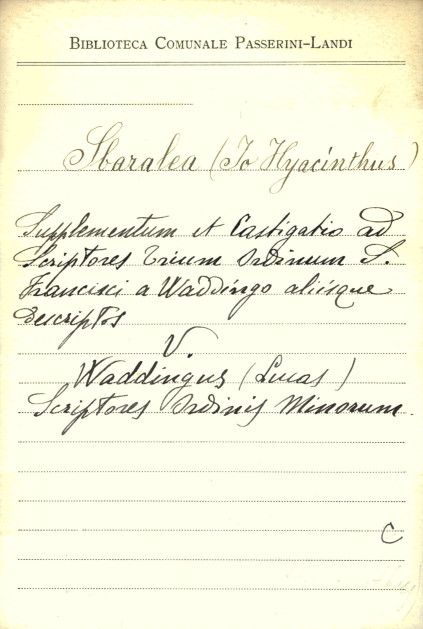 BIBLIOTECA COMUNALE PASSERINI-LANDI
Sbaralea (Jo Hyacinthus)
Supplementum et Castigatio ad
Scriptores Trium Ordinum S.
Francisci a Waddingo aliisque
descriptos
V.
Waddingus (Lucas)
Scriptores Ordinis Minorum.
C